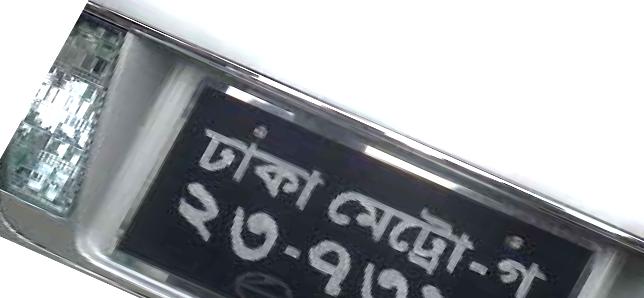 ঢাকা মেট্রো-গ
২৩-৭৩